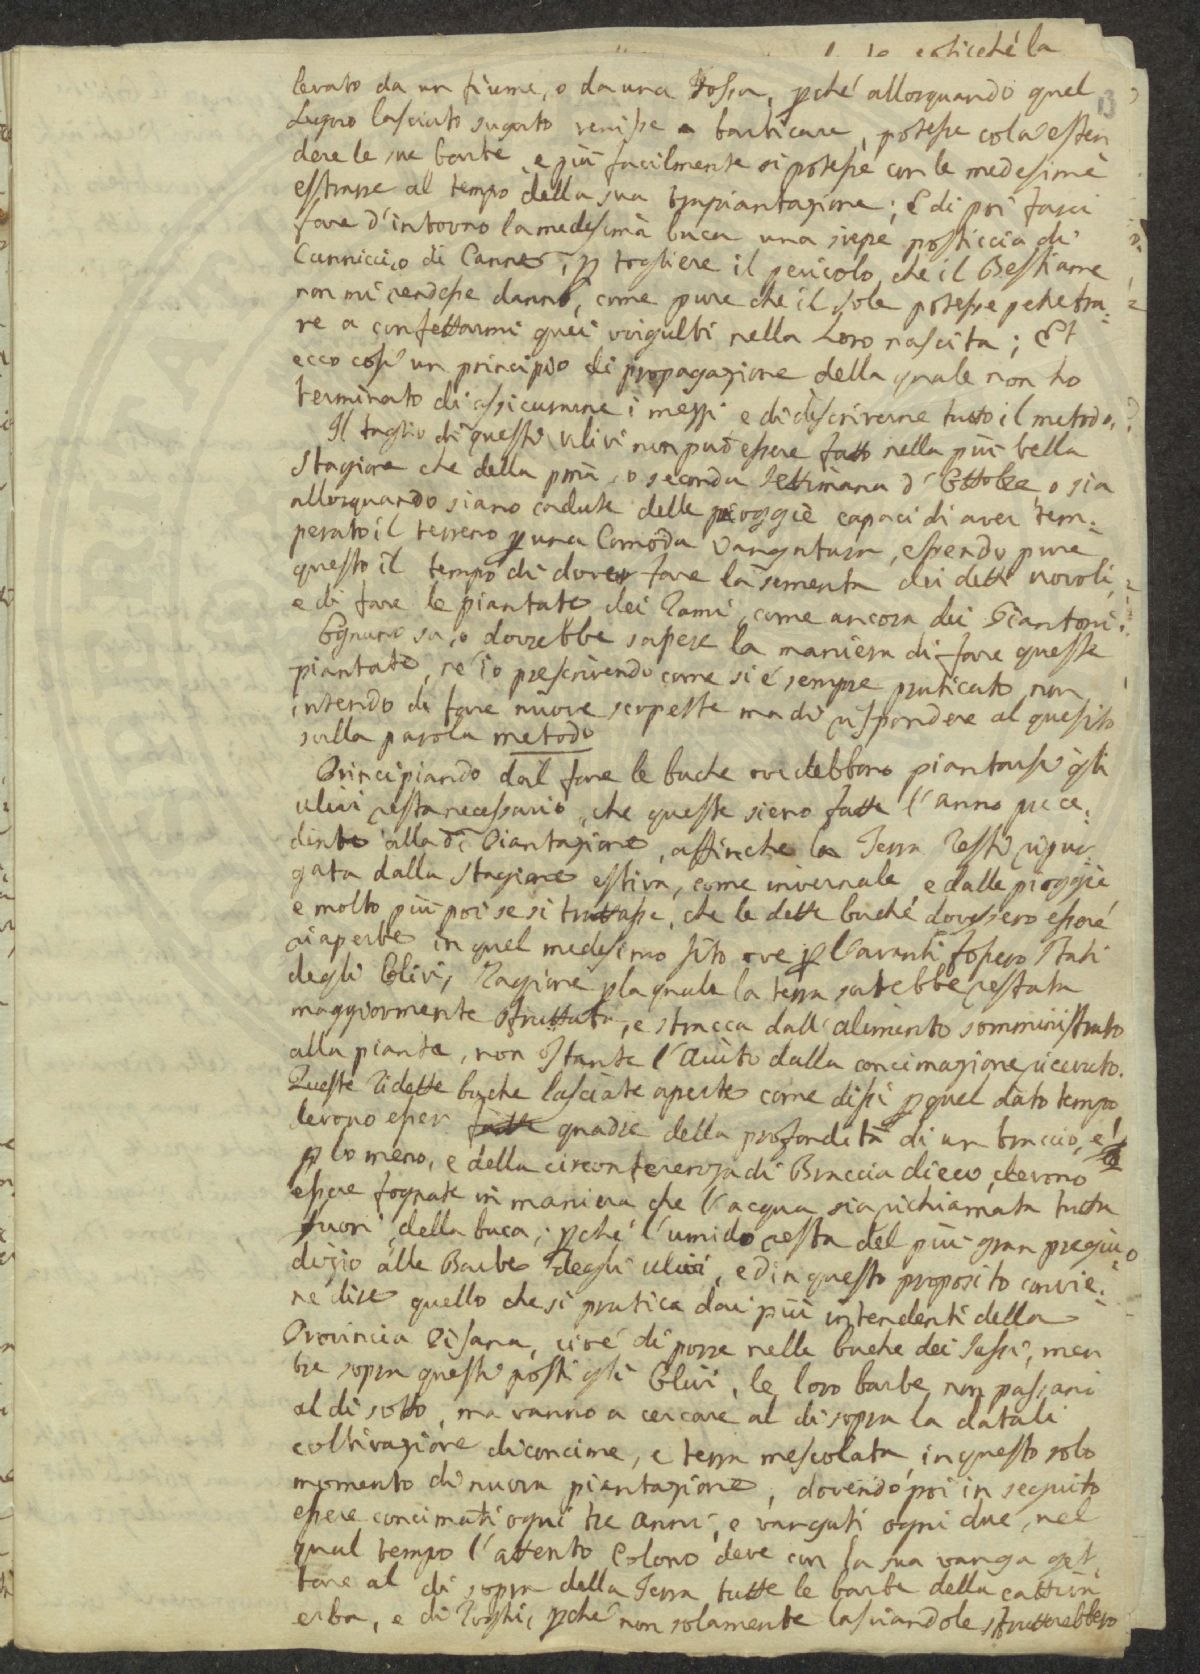 13
levato da un fiume, o da una Fossa, pché allorquando quel
Legno lasciato sugato venisse a barbicare, potesse colà esten
dere le sue barbe, e più facilmente si potesse con le medesime
estrarre al tempo della sua trapiantagione; E di poi feci
fare d'intorno la medesima buca una siepe posticcia di
Canniccio di Canne, p togliere il pericolo, che il Bestiame
non mi rendesse danno, come pure che il sole potesse penetra:
re a confettarmi quei virgulti nella Loro nascita; Et
ecco così un principio di propagazione della quale non ho
terminato di assicurarne i mezzi e di descriverne tutto il metodo.
Il taglio di questi ulivi non può essere fatto nella più bella
Stagione che della pma, o seconda Settimana d'Ottobre, o sia
allorquando siano cadute delle pioggie capaci di aver tem:
perato il terreno p una Comoda Vangatura, essendo pure
questo il tempo di dover fare la sementa dei detti uovoli,
e di fare le piantate dei Rami, come ancora dei Piantoni.
Ognuno sa, o dovrebbe sapere la maniera di fare queste
piantate, né io prescrivendo come si è sempre praticato non
intendo di fare nuove scoperte ma di rispondere al quesito
sulla parola metodo
Principiando dal fare le buche ove debbono piantarsi gli
ulivi resta necessario, che queste sieno fatte l'anno prece:
dente alla da Piantagione, affinché la Terra resti ripur
gata dalla Stagione estiva, come invernale, e dalle pioggie
e molto più poi se si trattasse, che le dette buche dovessero essere
riaperte in quel medesimo sito ove p l'avanti fossero stati
degli Olivi, Ragione p la quale la terra sarebbe restata
maggiormente sfruttata, e stracca dall'alimento somministrato
alla piante, non ostante l'aiuto dalla concimazione ricevuto.
Queste ridette buche lasciate aperte come dissi p quel dato tempo
devono esser fatte quadre della profondità di un braccio, e
p lo meno, e della circonferenza di Braccia dieci, devono
essere fognate in maniera che l'acqua sia richiamata tutta
fuori della buca; pché l'umido resta del più gran pregiu:
dizio alle Barbe degli ulivi, ed in questo proposito convie:
ne dire quello che si pratica dai più intendenti della
Provincia Pisana, cioè di porre nelle buche dei Sassi, men
tre sopra questi posti gli Olivi, le loro barbe non passano
al di sotto, ma vanno a cercare al di sopra la data li
coltivazione di concime, e terra mescolata, in questo solo
momento di nuova piantagione, dovendo poi in seguito
essere concimati ogni tre anni, e vangati ogni due, nel
qual tempo l'attento Colono deve con la sua vanga get
tare al di sopra della Terra tutte le barbe della cattiva
erba, e di Roghi, pché non solamente lasciandole sfrutterebbero